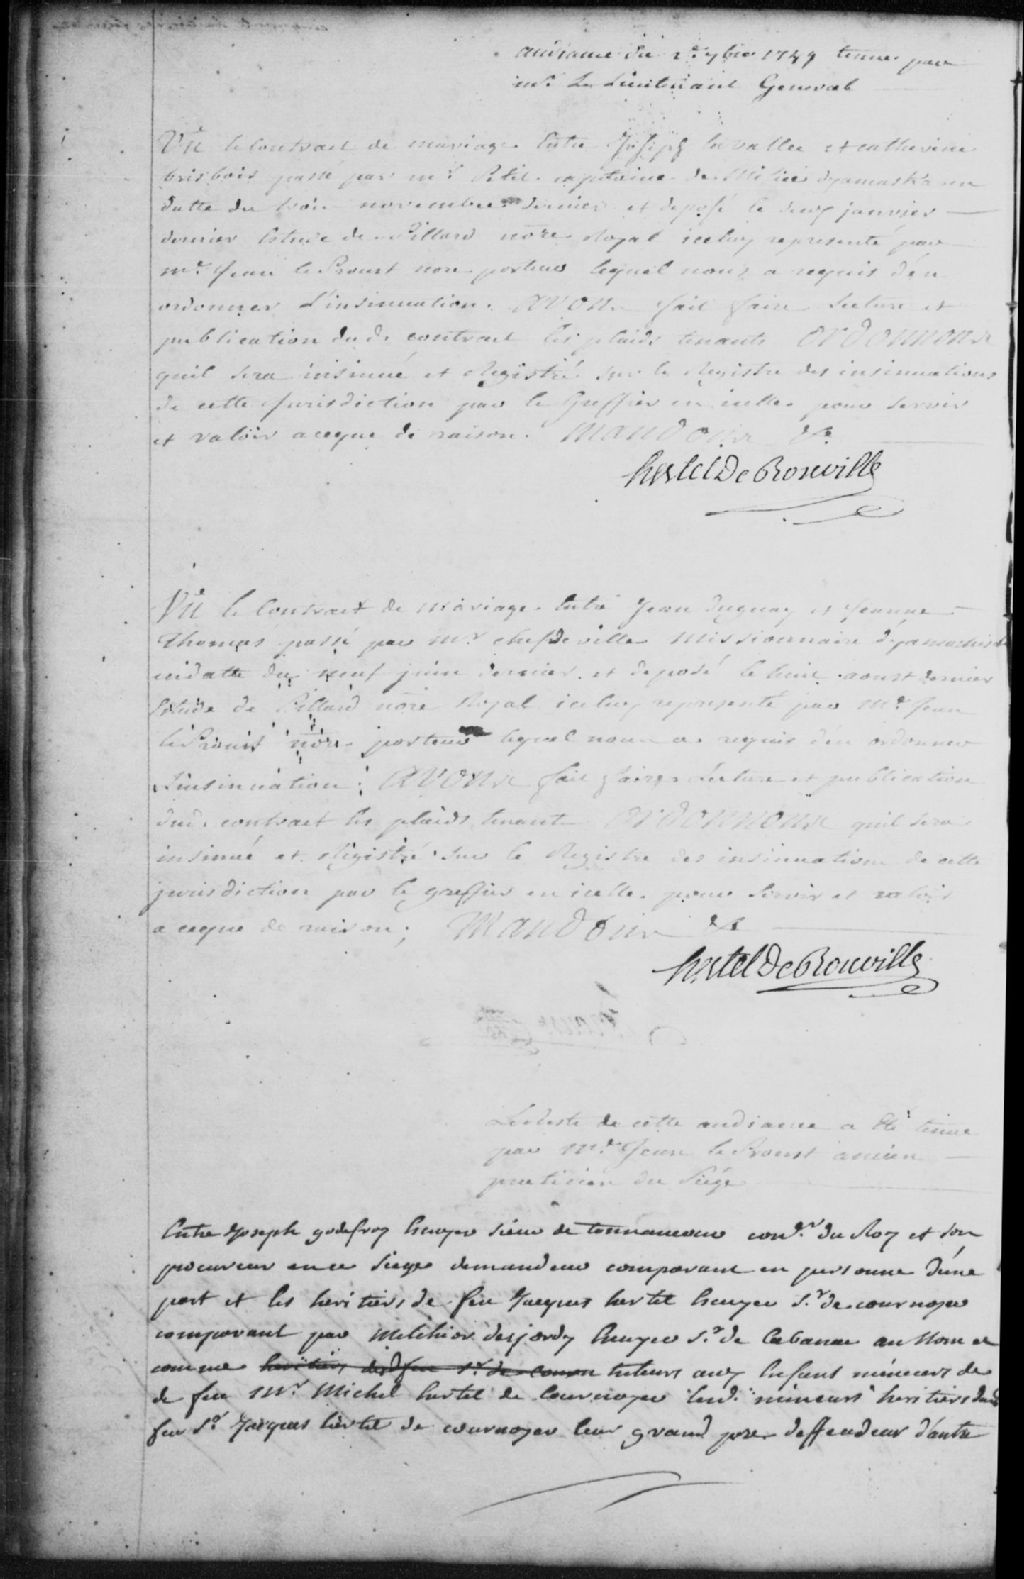 audiance du 2e 7bre 1749 tenue par
mr. Le Lieutenant General
Vu le Contract de mariage Entre Joseph la vallee et catherine
brisbois passé par mr. Petit capitaine de Milice dyamaska en
datte du trois novembre dernier et deposé le deux janvier
dernier Estude de Pillard nore. Royal iceluy representé par
mr. Jean le Proust nore porteur lequel nous a requis den
ordonner L'insinuation. avons fait faire lecture et
publication dud. contract les plaids tenants ordonnons
quil sera insinué et Registré sur le Registre des insinuations
de cette Jurisdiction par le Greffier en icelle pour servir
et valoir aceque de raison. Mandons &c
hertel De Rouville
Vu le Contract de Mariage Entre Jean duguay et Jeanne
Thomas passé par mr. chefdeville Missionnaire
endatte du neuf juin dernier et deposé le huit aoust dernier
Estude de Pillard nore Royal iceluy representé par mr. Jean
le Proust nore. porteur lequel nous a requis den ordonner
Linsinuation; avons fait faire lecture et publication
dud. contract les plaids tenant ordonnons quil sera
insinué et Registré sur le Registre des insinuations de cette
jurisdiction par le greffier en icelle pour servir et valoir
a ceque de raison; Mandons &c
hertel De Rouville
Le reste de cette audiance a été tenue
par mr. Jean le Proust ancien
praticien du Siége
Entre Joseph godefroy Ecuyer sieur de tonnancour conr. du Roy et son
procureur en ce siege demandeur comparant en personne d'une
part et les heritiers de feu Jacques hertel Ecuyer Sr. de cournoyer
comparant par Melchior desjordy Ecuyer Sr. de Cabanac au Nom et
comme heritiers dud feu Sr. de tuteurs aux Enfans mineurs de
de feu Mr. Michel hertel de Cournoyer lesd. mineurs heritiers dud
feu Sr. Jacques hertel de cournoyer leur grand pere deffendeur d'autre